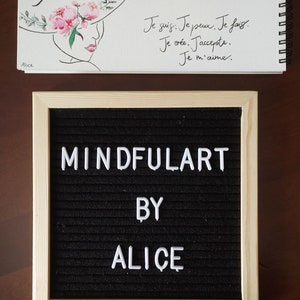 Je suis. Je peux. Je fais.
Je crée. J'accepte.
Je m'aime.
Alice
MINDFULART
BY
ALICE